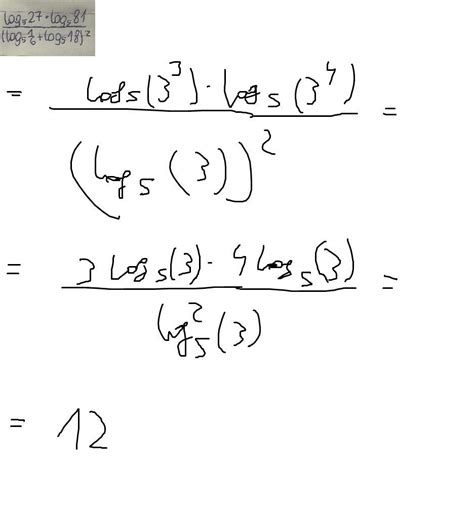 log₅27·log₅81
(log₅1/6+log₅18)²
= log₅(3³)·log₅(3⁴) =
(log₅(3))²
= 3log₅(3)·4log₅(3) =
log₅²(3)
= 12